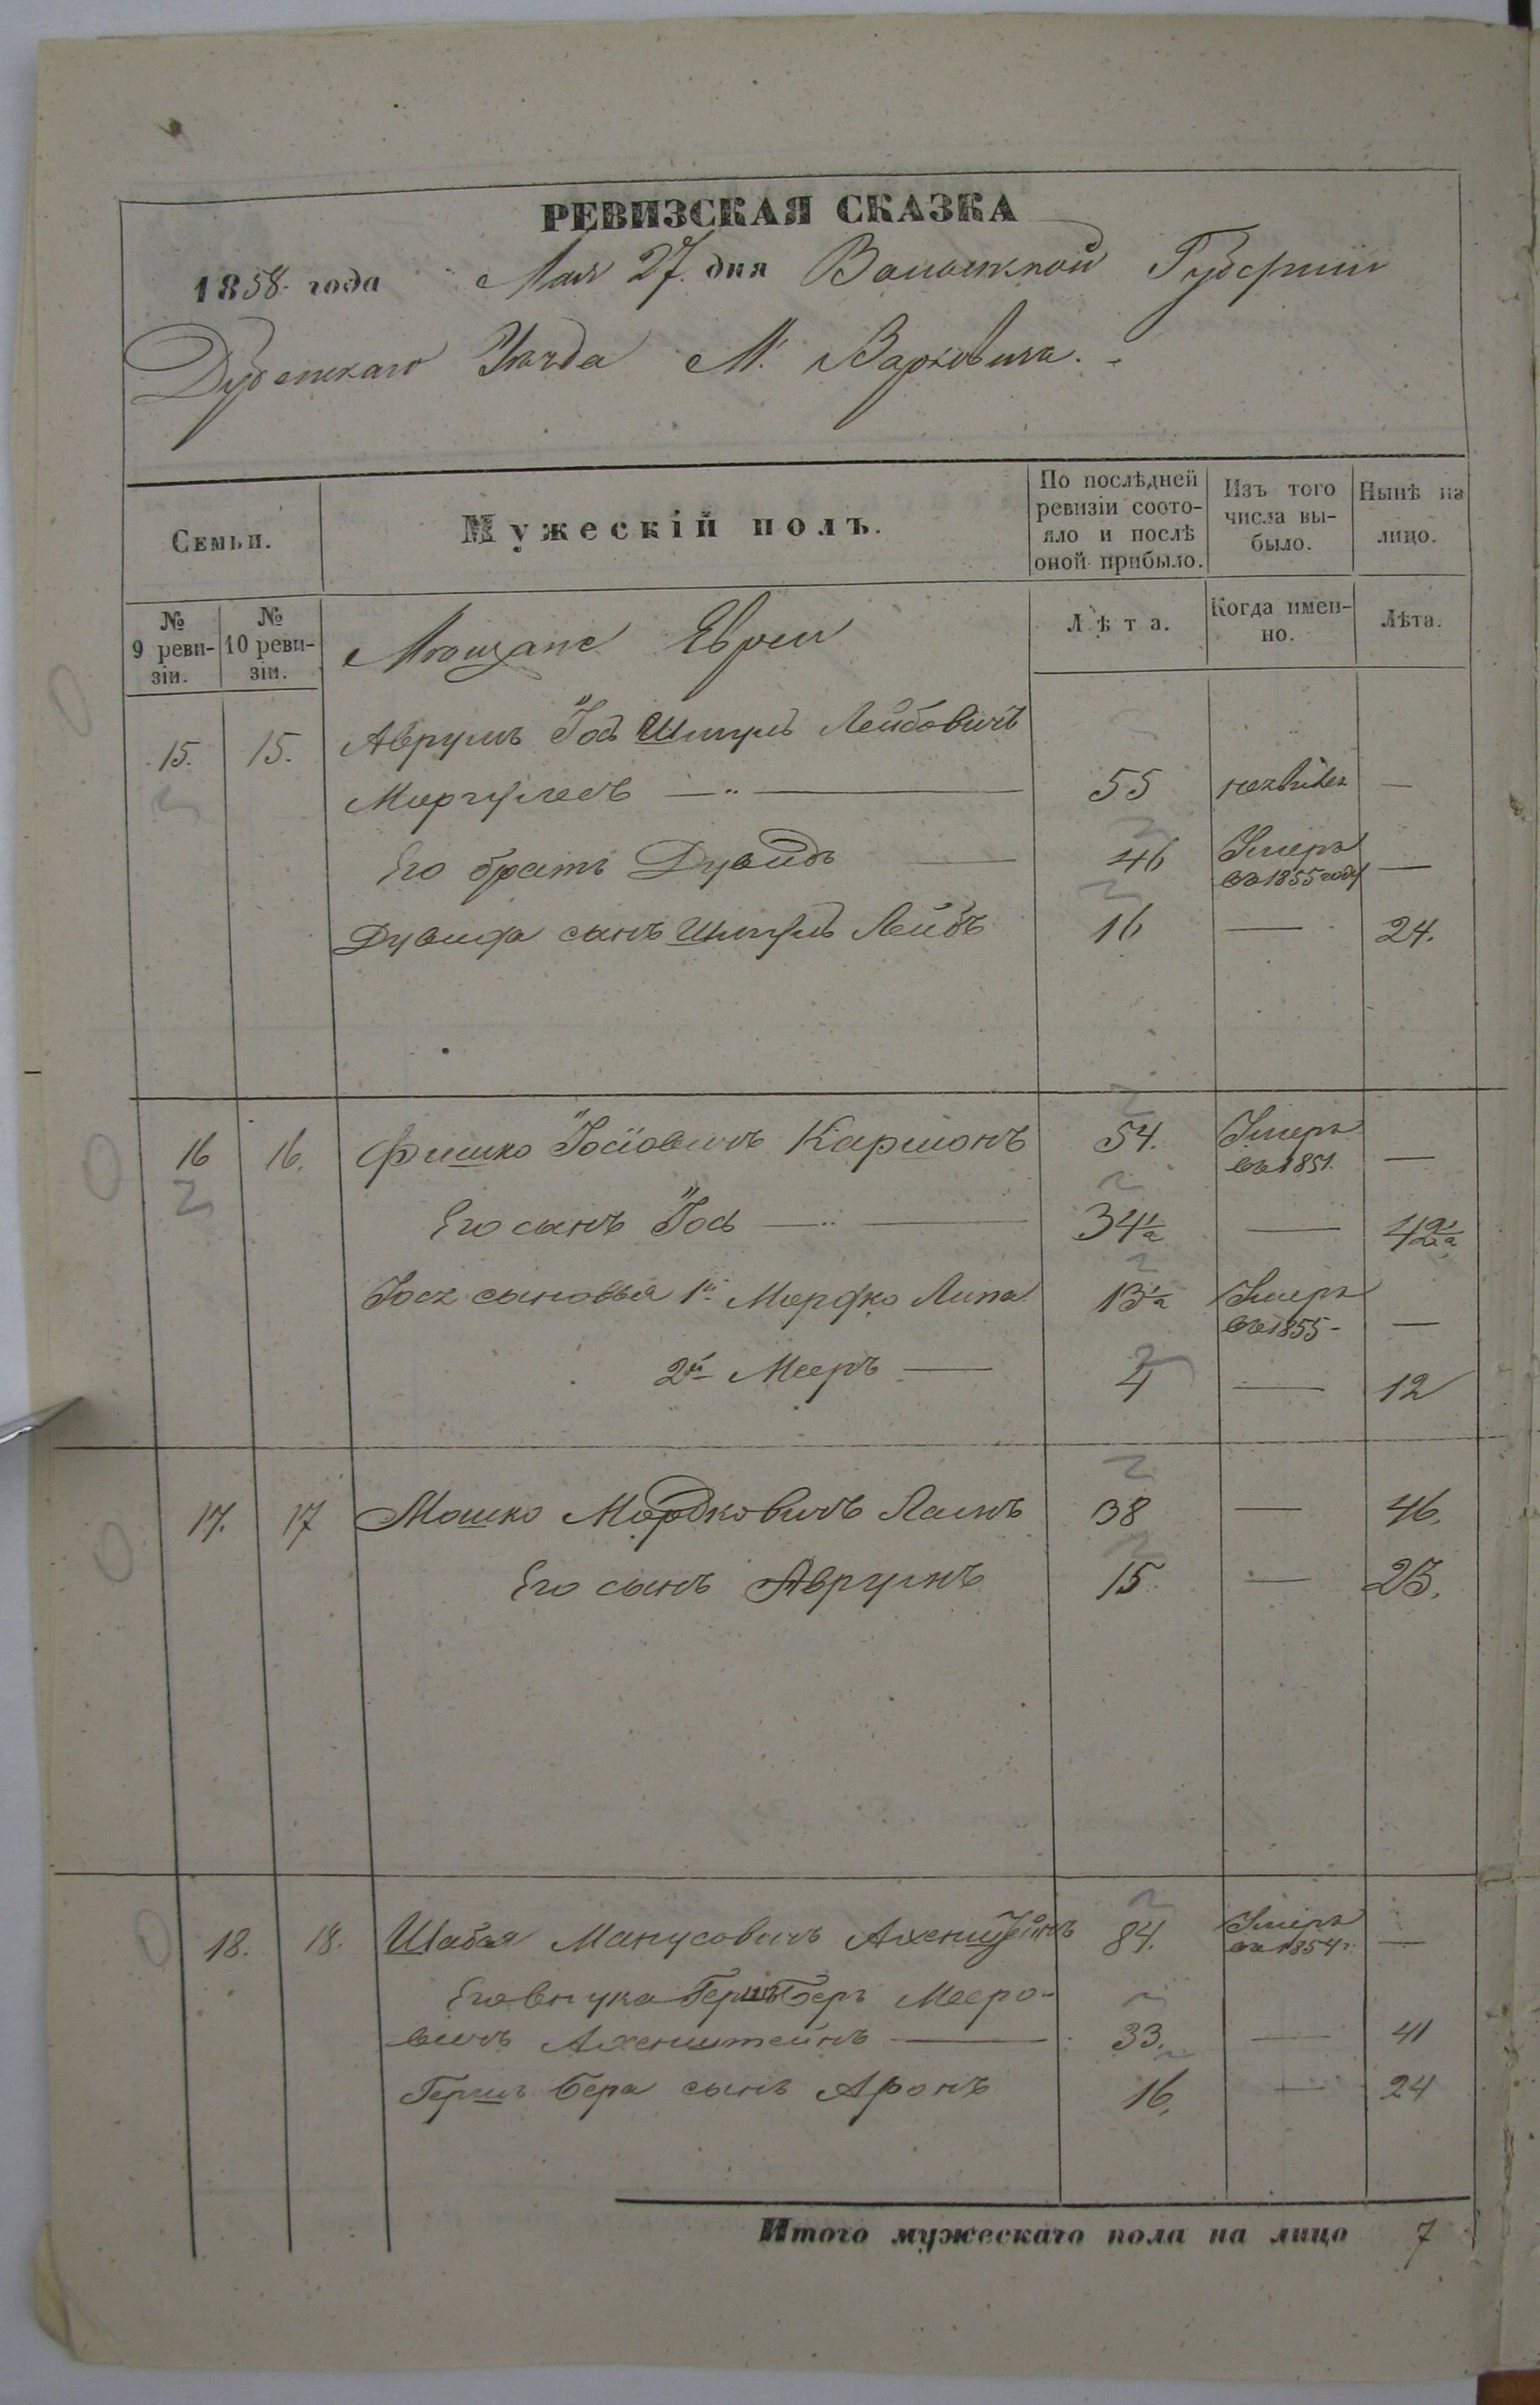 РЕВИЗСКАЯ СКАЗКА
1858 года Мая 27 дня Волынской Губерніи
Дубенскаго Уѣзда М. Варковичь
Семьи. Мужескій полъ. По послѣдней ревизіи состояло и послѣ оной прибыло. Изъ того числа выбыло. Ныне на лицо.
№ 9 ревизіи. № 10 ревизіи. Мѣщане Евреи Лѣта. Когда именно. Лѣта.
15. 15. Аврумъ Іось Шмуль Лейбовичъ
Моргулесъ — 55 —
Его братъ Дувидъ — 46 Умеръ въ 1855 году —
Дувида сынъ Шмуль Лейбъ 16 — 24.
16 16. Фишко Іосіовичъ Каршонъ 54. Умеръ въ 1851. —
Его сынъ Іось — 34½ — 42½
Іося сыновья 1й Мордко Липа 13½ Умеръ въ 1855 —
2й Мееръ — 4 — 12
17. 17 Мошко Мордковичъ 38 — 46.
Его сынъ Аврумъ 15. — 23.
18. 18. Шабая Манусовичъ Ахенштейнъ 84. Умеръ въ 1854 г. —
Его внука Гершъ Беръ Мееро-
вичъ Ахенштейнъ — 33. — 41
Гершъ Бера сынъ Аронъ 16. — 24
Итого мужескаго пола на лицо 7